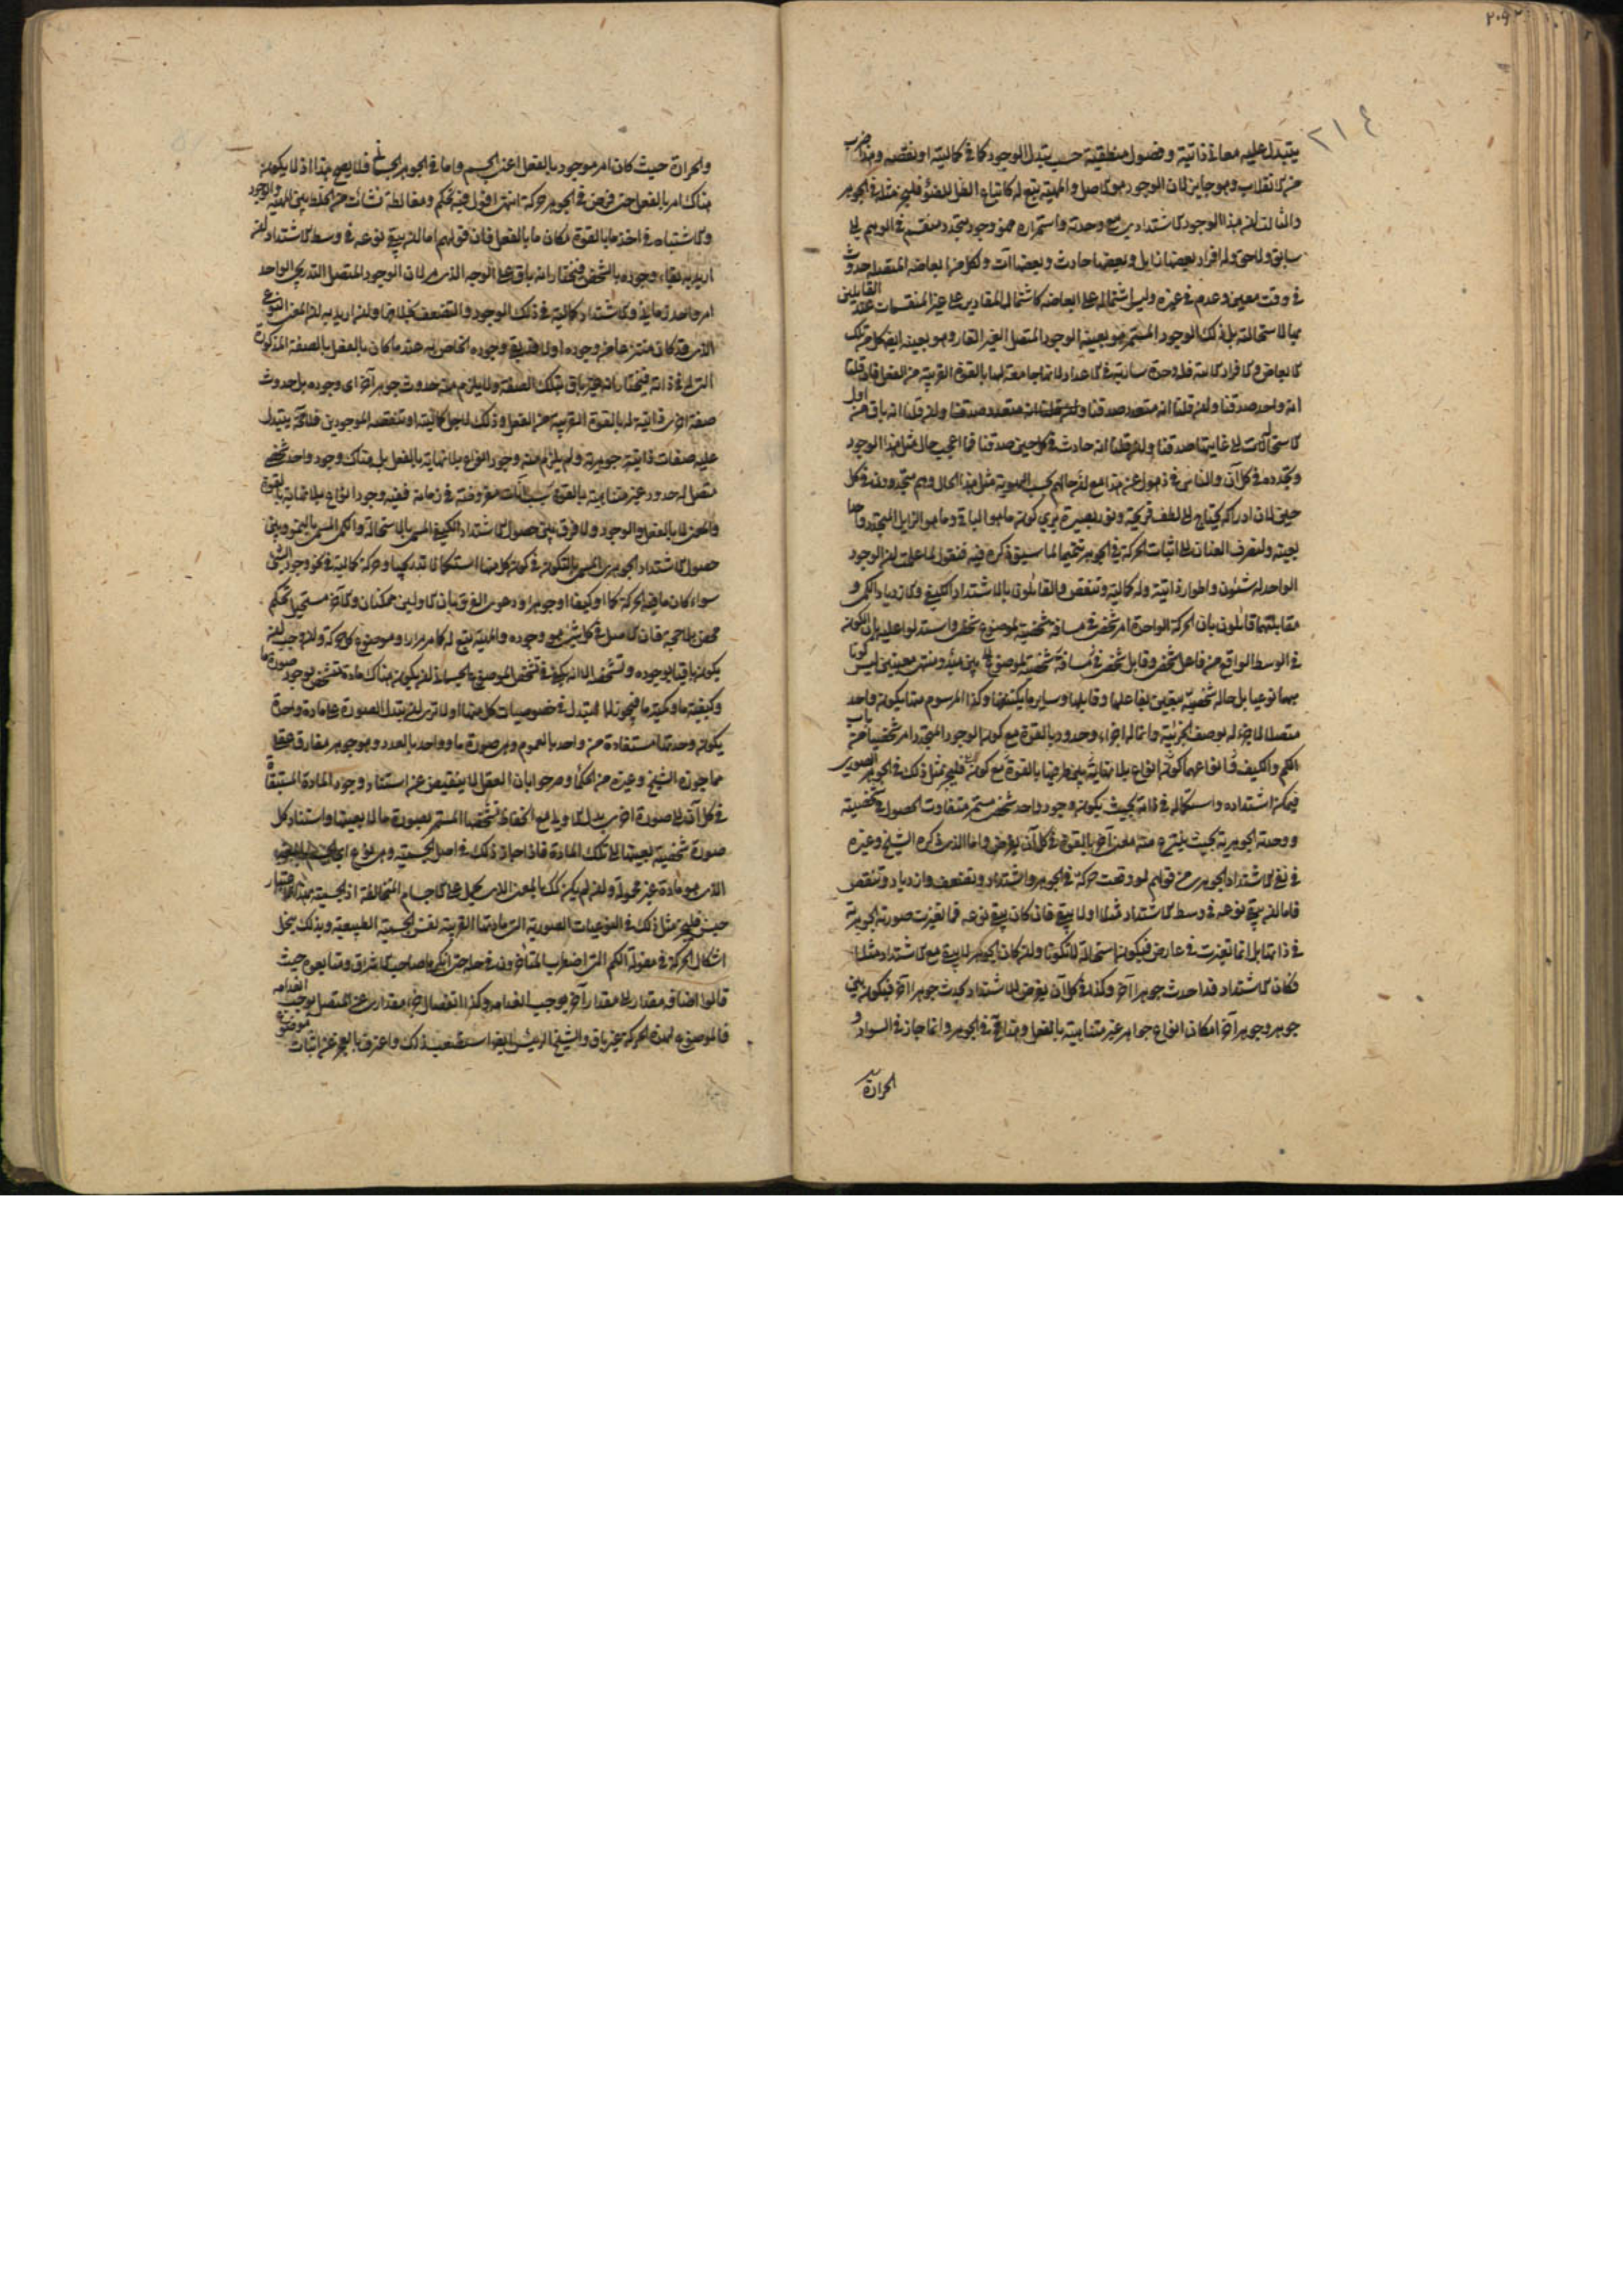 ٢٠٩
٢١٤
يتبدل عليه معانى ذاتية وفصول منطقية حسب تبدل الوجود كما فى كماليته او نقصه وهذا ضرب
من الانقلاب وهو جايز لان الوجود هو الاصل والمهية يتبع له كاتباع الظل للضوء فليجز مثله فى الجوهر
والثالث ان هذا الوجود الاشتدادى مع وحدته واستمراره فهو وجود متجدد منقسم فى الوهم الى
سابق ولاحق وله افراد بعضها زايل وبعضها حادث وبعضها آت ولكل من ابعاضه المتصلة حدوث
فى وقت معين وعدم فى غيره وليس اشتماله على ابعاضه كاشتمال المقادير على غير المنقسمات عند القايلين
بها لاستحالته بل ذلك الوجود المستمر هو بعينه الوجود المتصل الغير القار وهو بعينه ايضا كل من تلك
الابعاض والافراد الآنية فله وحدة سارية فى الاعداد لانها جامعة لها بالقوة القريبة من الفعل فان قلنا
انه واحد صدقنا وان قلنا انه متعدد صدقنا وان قلنا انه باق من اول
الاستحالات الى غايتها صدقنا وان قلنا انه حادث فى كل حين صدقنا فما اعجب حال مثل هذا الوجود
وتجدده فى كل آن والناس فى ذهول عن هذا مع ان حالهم بحسب الهوية مثل هذا الحال وهم متجددون فى كل
حين لان ادراكه يحتاج الى لطف قريحة ونور بصيرة يرى كون ما هو الباقى وما هو الزايل المتجدد واحدا
بعينه ولنصرف العنان الى اثبات الحركة فى الجوهر تتميما لما سبق ذكره فيه فنقول لما علمت ان الوجود
الواحد له شئون واطوار ذاتية وله كمالية وتنقص والقايلون بالاشتداد الكيفى والازدياد الكمى و
مقابلتهما قايلون بان الحركة الواحدة امر شخصى فى مسافة شخصية لموضوع شخصى واستدلوا عليه بان الكون
فى الوسط الواقع من فاعل شخصى وقابل شخصى فى مسافة شخصية لموضوع بين مبدء ومنتهى معينين ليس كونا
مبهما نوعيا بل حالة شخصية يتعين بفاعلها وقابلها وساير ما يكتنفها وكذا المرسوم منها يكون واحدا
متصلا لا جزء له بوصف الجزئية وانما له اجزاء وحدود بالقوة مع كون الوجود المتجدد امرا شخصيا من باب
الكم والكيف فانواعهما كون انواع بلا نهاية بين طرفيها بالقوة مع كون فليجز مثل ذلك فى الجوهر الصورى
فيمكن اشتداده واستكماله فى ذاته بحيث يكون وجود واحد شخصى مستمر متفاوت الحصول فى شخصيته
ووحدته الجوهرية بحيث ينتزع منه معنى آخر بالقوة فى كل آن يفرض واما الذى ذكره الشيخ وغيره
فى نفى الاشتداد الجوهرى من قولهم لو وقعت حركة فى الجوهر واشتداد وتضعف وازدياد وتنقص
فاما ان يبقى نوعه فى وسط الاشتداد مثلا او لا يبقى فان كان يبقى نوعه فما تغيرت صورته الجوهرية
فى ذاتها بل انما تغيرت فى عارض فيكون استحالة لا تكونا وان كان الجوهر لا يبقى مع الاشتداد مثلا
فكان الاشتداد قد احدث جوهرا آخر وكذا فى كل آن يفرض للاشتداد يحدث جوهرا آخر فيكون بين
جوهر وجوهر آخر امكان انواع جواهر غير متناهية بالفعل وهذا مح فى الجوهر وانما جاز فى السواد و
الحرارة
والحرارة حيث كان امر موجود بالفعل اعنى الجسم واما فى الجوهر الجسمانى فلا يصح هذا اذ لا يكون
هناك امر بالفعل حتى فرض فى الجوهر حركة انتهى اقول فيه تحكم ومغالطة نشأت من الخلط بين المهية والوجود
والاشتباه فى اخذ ما بالقوة مكان ما بالفعل فان قولهم اما ان يبقى نوعه فى وسط الاشتداد ان
اريد به بقاء وجوده بالشخص فنختار انه باق على الوجه الذى مر لان الوجود المتصل التدريجى الواحد
امر واحد زمانى والاشتداد كمالية فى ذلك الوجود والتضعف بخلافها وان اريد به ان المعنى النوعى
الذى قد كان منتزعا من وجوده اولا قد بقى وجوده الخاص به عند ما كان بالفعل بالصفة المذكورة
التى له فى ذاته فنختار انه غير باق بتلك الصفة ولا يلزم منه حدوث جوهر آخر اى وجوده بل حدوث
صفة اخرى ذاتية له بالقوة القريبة من الفعل وذلك لاجل كماليته او تنقصه الوجوديين فلا محة يتبدل
عليه صفات ذاتية جوهرية ولم يلزم منه وجود انواع بلا نهاية بالفعل بل هناك وجود واحد شخصى
متصل له حدود غير متناهية بالقوة بحسب آنات مفروضة فى زمانه ففيه وجود انواع بلا نهاية بالقوة
والمعنى لا بالفعل والوجود ولا فرق بين حصول الاشتداد الكيفى المسمى بالاستحالة والكمى المسمى بالنمو وبين
حصول الاشتداد الجوهرى المسمى بالتكون فى كون كل منها استكمالا تدريجيا وحركة كمالية فى نحو وجود الشئ
سواء كان ما فيه الحركة كما او كيفا او جوهرا ودعوى الفرق بان الاولين ممكنان والآخر مستحيل تحكم
محض بلا حجة فان الاصل فى كل شئ هو وجوده والمهية يتبع له كما مر مرارا وموضوع كل حركة وان وجب ان
يكون باقيا بوجوده وتشخصه الا انه يكفى فى تشخص الموضوع الجسمانى ان يكون هناك مادة تتشخص بوجود صورة ما
وكيفية ما وكمية ما فيجوز له التبدل فى خصوصيات كل منها اولا ترى ان تبدل الصورة على مادة واحدة
يكون وحدتها مستفادة من واحد بالعموم وهى صورة ما وواحد بالعدد وهو جوهر مفارق عقلى
مما جوزه الشيخ وغيره من الحكماء وصرحوا بان العقل لا ينقبض عن استناد وجود المادة المستبقاة
فى كل آن الى صورة اخرى بدلا مع انحفاظ تشخصها المستمر بصورة ما لا بعينها واستناد كل
صورة شخصية بعينها الى تلك المادة فاذا جاز ذلك فى اصل الجسمية وهى نوع
الذى هو مادة غير محمولة وان لم يكن كك بالمعنى الذى يحمل على الاجسام المتخالفة اذ الجسمية بهذا الاعتبار
جنس فليجز مثل ذلك فى النوعيات الصورية التى مادتها القريبة نفس الجسمية الطبيعية وبذلك ينحل
اشكال الحركة فى مقولة الكم التى اضطرب المتاخرون فى حله حتى انكرها صاحب الاشراق ومتابعوه حيث
قالوا اضافة مقدار الى مقدار آخر يوجب انعدامه وكذا انفصال جزء مقدارى عن المتصل يوجب انعدامه
فالموضوع لهذه الحركة غير باق والشيخ الرئيس ايضا استصعب ذلك واعترف بالعجز عن اثبات موضوع